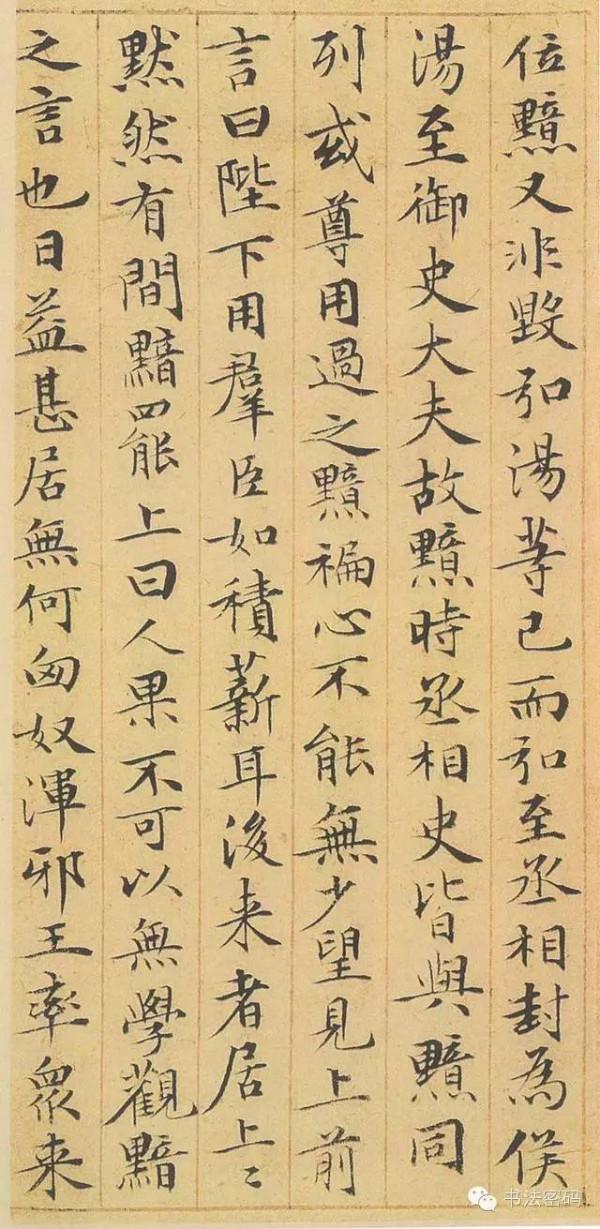 位黯又非毀弘湯等已而弘至丞相封為侯
湯至御史大夫故黯時丞相史皆與黯同
列或尊用過之黯褊心不能無少望見上前
言曰陛下用羣臣如積薪耳後来者居上〻
黙然有間黯罷上曰人果不可以無學觀黯
之言也日益甚居無何匈奴渾邪王率眾来
书法密码